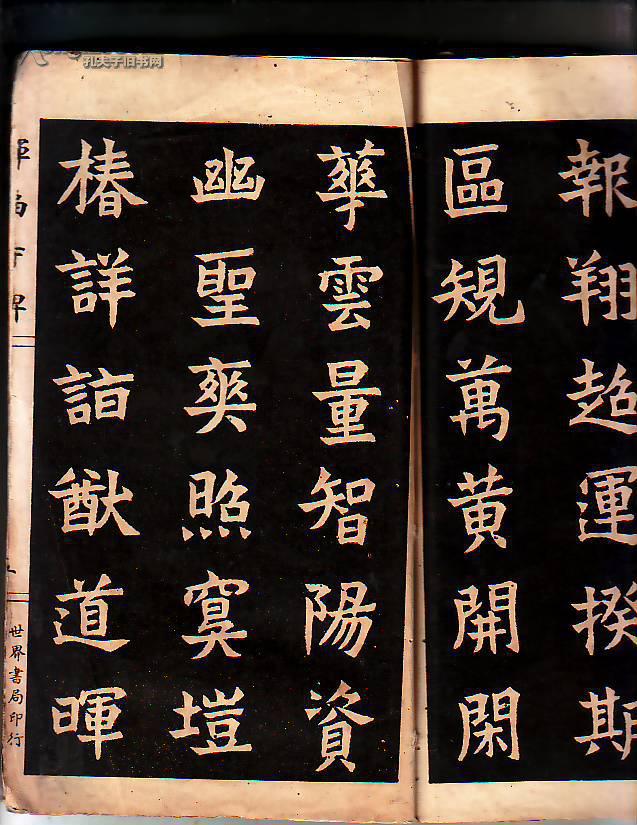 孔夫子旧书网
報翔超運揆斯
區規萬黄開閑
華雲量智陽資
幽聖爽照寞塏
椿詳詣猷道暉
世界書局印行